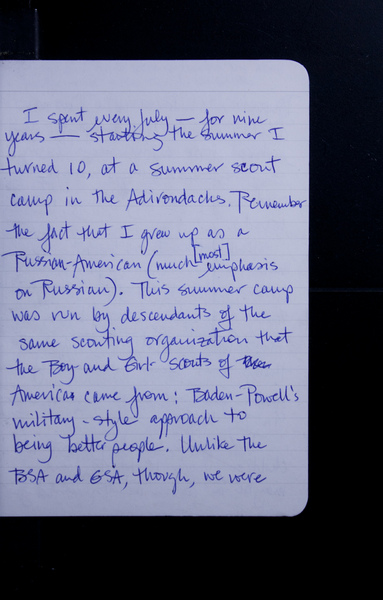 I spent every July — for nine
years — starting the summer I
turned 10, at a summer scout
camp in the Adirondacks. Remember
the fact that I grew up as a
Russian-American (much [most] emphasis
on Russian). This summer camp
was run by descendants of the
same scouting organization that
the Boy and Girl Scouts of
America came from: Baden-Powell's
military-style approach to
being better people. Unlike the
BSA and GSA, though, we were